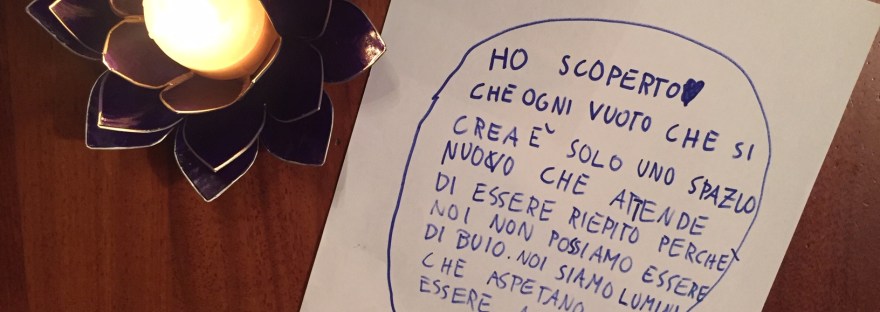 HO SCOPERTO
CHE OGNI VUOTO CHE SI
CREA È SOLO UNO SPAZIO
NUOVO CHE ATTENDE
DI ESSERE RIEPITO PERCHÈ
NOI NON POSSIAMO ESSERE
DI BUIO. NOI SIAMO LUMINI
CHE ASPETANO
ESSERE